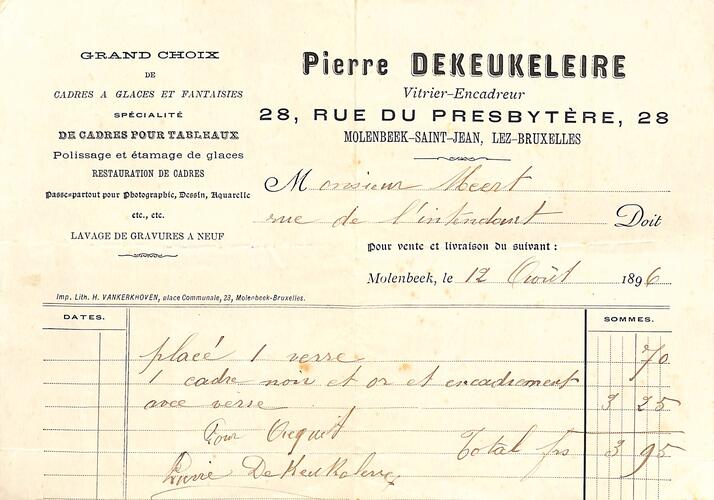 GRAND CHOIX
DE
CADRES A GLACES ET FANTAISIES
SPÉCIALITÉ
DE CADRES POUR TABLEAUX
Polissage et étamage de glaces
RESTAURATION DE CADRES
Passe-partout pour Photographie, Dessin, Aquarelle
etc., etc.
LAVAGE DE GRAVURES A NEUF
Imp. Lith. H. VANKERKHOVEN, place Communale, 23, Molenbeek-Bruxelles.
Pierre DEKEUKELEIRE
Vitrier-Encadreur
28, RUE DU PRESBYTÈRE, 28
MOLENBEEK-SAINT-JEAN, LEZ-BRUXELLES
Monsieur Meert
rue de l'intendant Doit
Pour vente et livraison du suivant :
Molenbeek, le 12 Août 1896
DATES. SOMMES.
placé 1 verre 70
1 cadre noir et or et encadrement
avec verre 3 25
Pour Acquit Total frs 3 95
Pierre DeKeukeleire